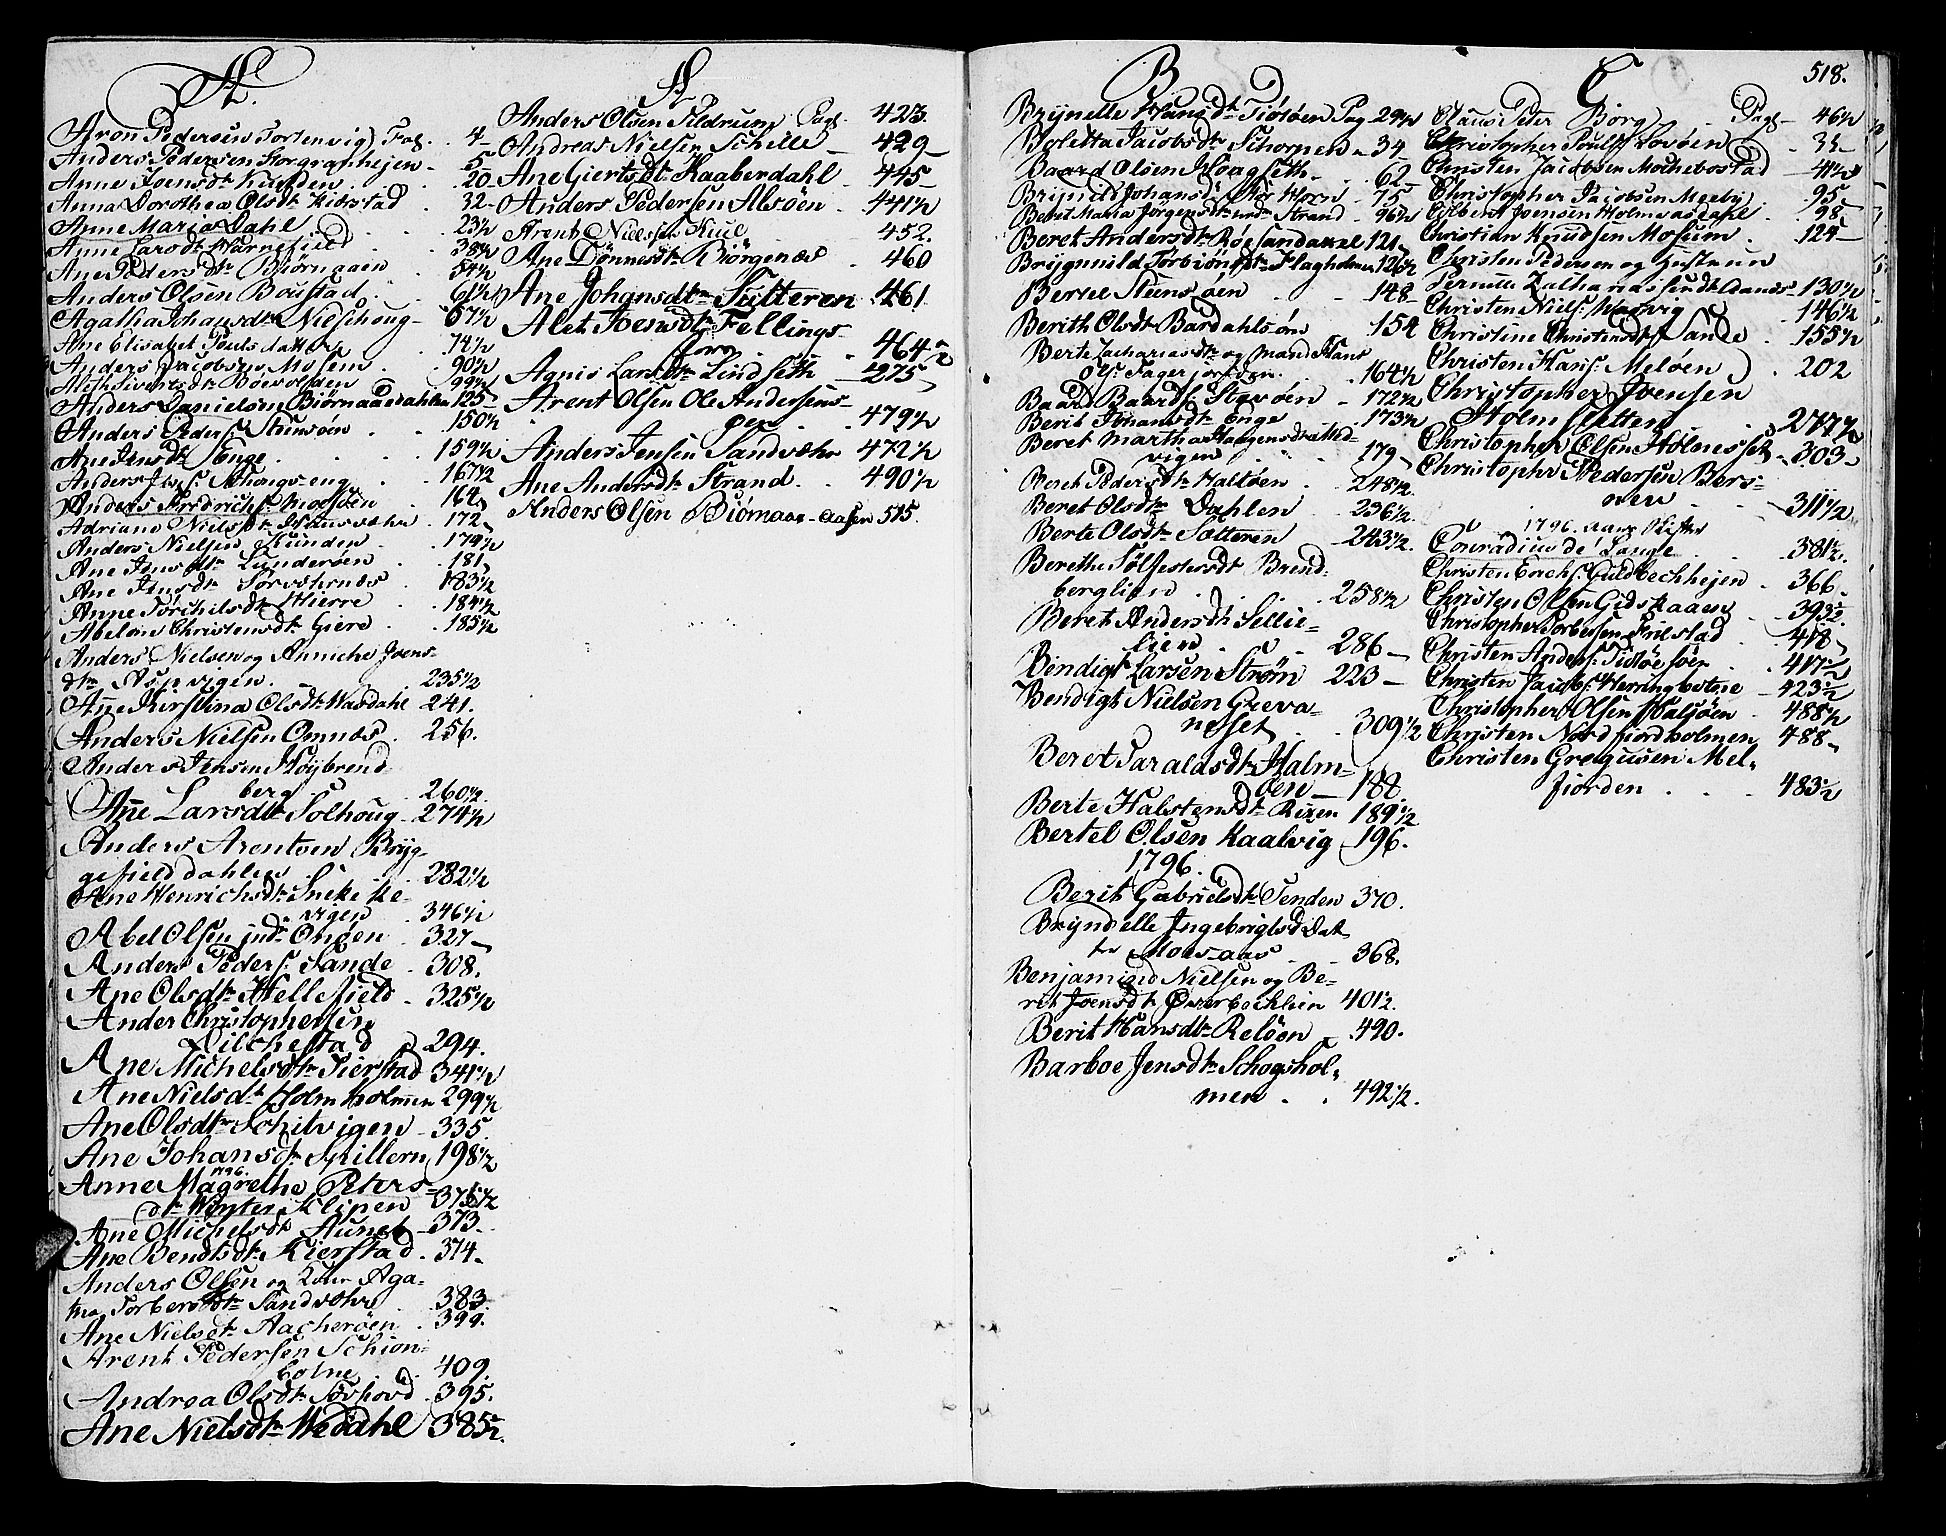 A.
Aron Pedersen Tortenvig Fol. 4-
Anders Pedersen Storgraphejen - 5-
Anne Joensdtr Kunden . . 20-
Anna Dorothea Olsdt Kierstad . 32-
Anne Maria Dahl . . 23½
Anne Larsdt Warnefield . 38½
Ane Peders dtr Biørnaaen . 54½
Anders Olsen Boustad . 61½
Agatha Johansdtr Nielshoug - 67½
Ane Elisabet Pouls datter . 74½
Anders Jacobsen Mosem . 90½
Aleth Sivertsdtr Bøevolden . 99½
Anders Danielsen Biørnaaedahlen 125-
Anders Peders Stensøen . . 150½
Ane Jensdtr Senge . . . 159½
Anders Jens Schongseng . . 167½
Anders Fredrichs Mosøen . 164-
Adriane Nielsdtr Husvæhr . 172-
Anders Nielsen Kunden . 179½
Ane Jensdtr Lunderøen . 181-
Ane Jensdtr Sørvæhrnæs . 183½
Anne Torchilsdtr Hierre . 184½
Abelone Christensdtr Giere . 185½
Anders Nielsen og Anniche Joens-
dtr Aspvigen . . 235½
Ane Kirstina Olsdtr Wasdahl 241.
Anders Nielsen Omnæs . 256.
Anders Jensen Høybrend
berg . . 260½
Ane Larsdtr Solhoug - 274½
Anders Arentsen Bryg-
gefield dahlen . 282½
Ane Henrichsdtr Sneke He-
vigen . 346½
Abel Olsen indr Ongen . 327-
Anders Peders. Sande . 308.
Ane Olsdtr Hellefield . 325½
Ander Christophersen
Vilchestad . 294.
Ane Michelsdtr Kierstad 341½
Ane Nielsdtr Holm holmen 299½
Ane Olsdtr Schitvigen - 335.
Ane Johansdtr Spillern 198½
1796.
Anne Magrethe Peters-
dtr Wynter Klipen - 376½
Ane Michelsdtr Aunet - 373-
Ane Bendtsdtr Kierstad . 374-
Anders Olsen og Qvin Aga-
tha Torbersdtr Sandvæhr . 383.
Ane Nielsdtr Aacherøen . 399.
Arent Pedersen Schion-
botne . . 409.
Andrea Olsdtr Søvhovd . 395.
Ane Nielsdtr Wædahl 385½.
A
Anders Olsen Sildrum Pag. 423.
Andreas Nielsen Schille - 429-
Ane Giertsdtr Kaaberdahl . 445-
Anders Pedersen Alsøen . 441½
Arent Nielsen Kiul . . 452.
Ane Dønnesdtr Biørgenæs . 460
Ane Johansdtr Sulteren . 461.
Alet Joensdtr Fellings-
fors . . 464½
Agnis Larsdtr Lindseth - 275-
Arent Olsen Ole Andersens-
gen . . 479½
Anders Jensen Sandvæhr 472½
Ane Andersdtr Strand . . 490½
Anders Olsen Biørnaae-Aasen 515.
B
Brynelle Hansdtr Tiøtøen Pag 29½
Boletta Jacobsdtr Schornen - 34
Baard Olsen Hoagseth . . 62-
Brynild Johansd Horn - 75
Berit Maria Jørgensdtr Strand . 96½
Beret Andersdtr Røesandaxel 121-
Brygnnild Torbiønsdtr Flagholmen 126½
Bertel Steensøen . . 148-
Berith Olsdtr Bardahlsøn . 154
Berte Zachariasdtr og Mand Hans
Ols. Fagerjorden . . 164½
Baard Baards. Stavøen - 172½
Berit Johansdtr Enge . 173½
Beret Martha Haagensdtr
vigen . . 179-
Beret Pedersdtr Haltøen . 248½.
Beret Olsdtr Dahlen . . 236½.
Berte Olsdtr Sætteren - 243½.
Berethe Sølfestersdt Brend-
berglien . . . 258½
Beret Andersdt Sellie-
lien . . 286-
Bendigt Larsen Strøm 223-
Bendigt Nielsen Greva-
nesset . . 309½
Beret Saraldsdtr Halm-
øen - 188
Berte Halstensdtr Rixen 189½
Bertel Olsen Kaalvig 196.
1796.
Berit Gabrielsdtr Tenden 370.
Bryndelle Ingebrigtsd Dat-
ter Moes-aas . - 368.
Benjamind Nielsen og Be-
ret Joensdt Øverbechlien 401½.
Berit Hansdtr Reløen . 490.
Barboe Jensdtr Schogshol-
men . . 492½.
C
518.
Claus Peter Borg . Pag. 46½
Christopher Pouls Lovøen . . 33-
Christen Jacobsen Mochebostad - 41½
Christopher Jacobsen Meeby . . 95-
Elbert Joensen Holmvasdahl . . 98-
Christian Knudsen Mosum . . 124-
Christen Pedersen og Hustrue
Pernille Zachariasdt Dands- 130½
Christen Niels. Warvig . . 146½
Christine Christensdtr Sande . 155½
Christen Hans. Meløen . . 202
Christopher Joensen
Holm sletten . . 277½
Christopher Olsen Holmesset . 303-
Christopher Pedersen Bers-
nen . . 311½
1796.
Conradius de Lange . . 381½.
Christen Erichs. Guldbechhejen . 366.
Christen Olsen Gidskaaen . 393½
Christopher Torbersen Frilstad . 418-
Christen Anders. Tistøesøen . . 417½
Christen Jacobs. Herringbotne - 423½
Christopher Olsen Halsøen . 488½
Christen Nordfjordholmen 488-
Christen Gregusen Mel-
fjorden . . . 483½